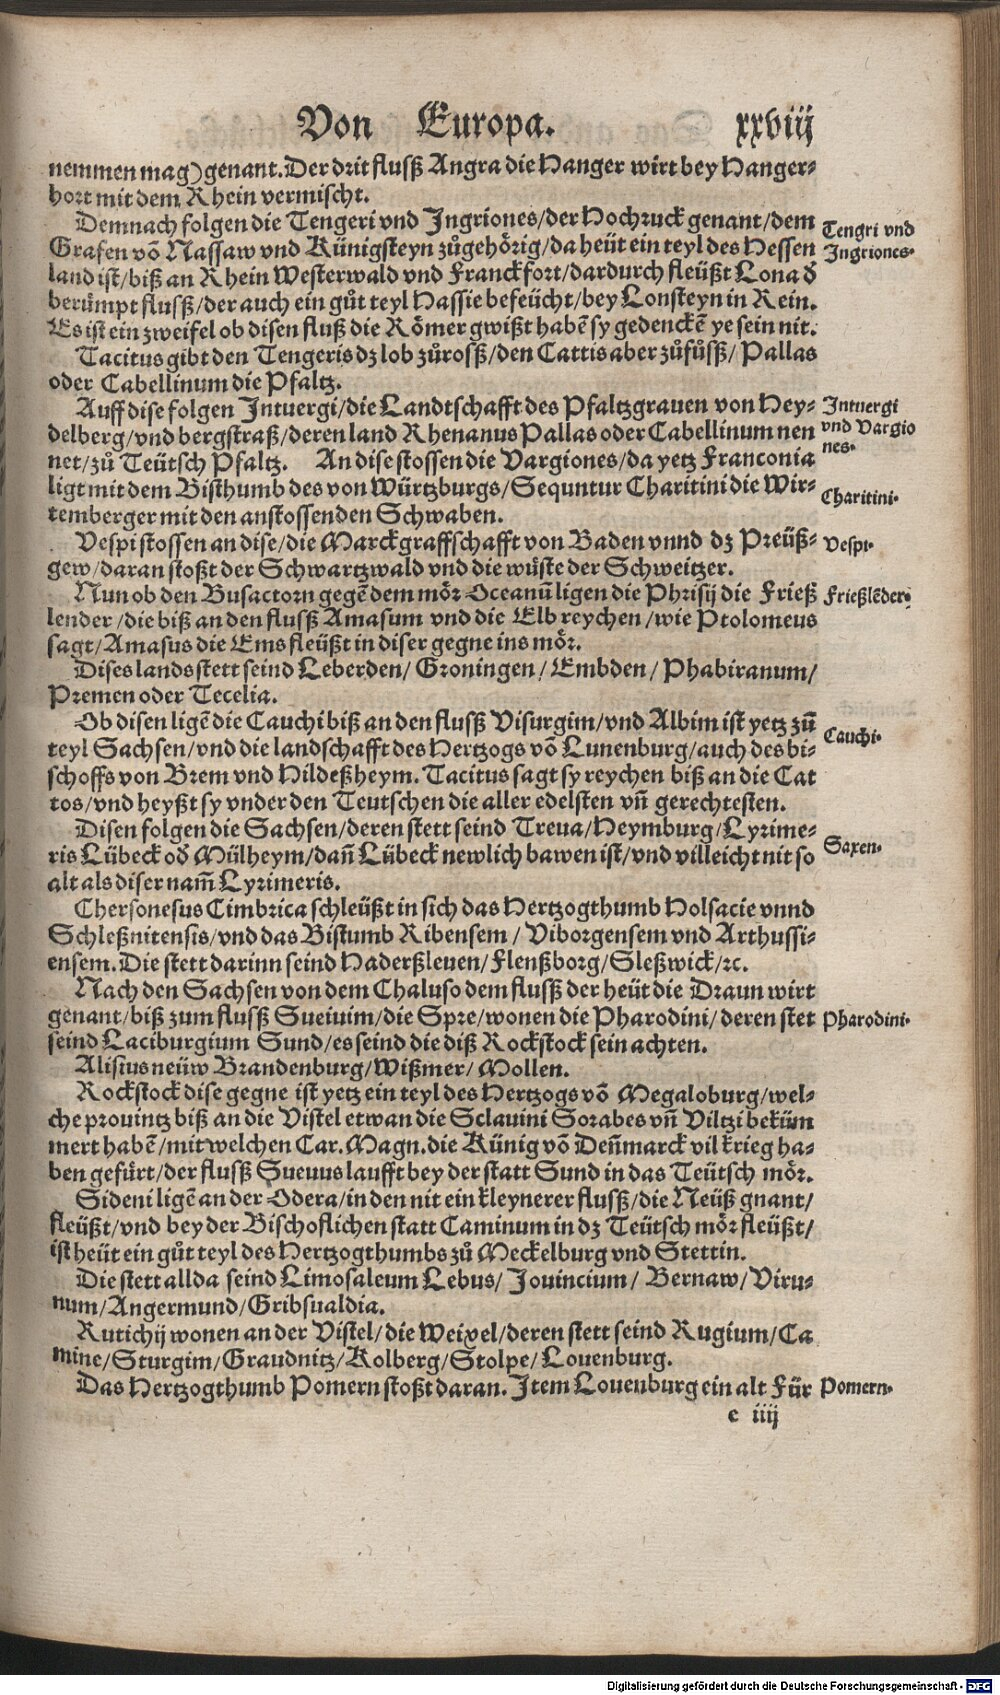 Von Europa. xxviij
nemmen mag) genant. Der drit flusß Angra die Hanger wirt bey Hanger⸗
hort mit dem Rhein vermischt.
Demnach folgen die Tengeri vnd Jngriones/der Hochruck genant/dem
Tengri vnd
Grafen võ Nassaw vnd Künigsteyn zůgehörig/da heüt ein teyl des Hessen
Jngriones.
land ist/biß an Rhein Westerwald vnd Franckfort/dardurch fleüßt Lona d̕
berümpt flusß/der auch ein gůt teyl Hassie befeücht/bey Lonsteyn in Rein.
Es ist ein zweifel ob disen fluß die Römer gwißt habẽ sy gedenckẽ ye sein nit.
Tacitus gibt den Tengeris dz lob zůrosß/den Cattis aber zůfůsß/Pallas
oder Cabellinum die Pfaltz.
Auff dise folgen Jntuergi/die Landtschafft des Pfaltzgrauen von Hey⸗
Jntuergi
delberg/vnd bergstraß/deren land Rhenanus Pallas oder Cabellinum nen
vnd Vargio
net/zů Teütsch Pfaltz. An dise stossen die Vargiones/da yetz Franconia
nes.
ligt mit dem Bisthumb des von Würtzburgs/Sequntur Charitini die Wir⸗
Charitini.
temberger mit den anstossenden Schwaben.
Vespi stossen an dise/die Marckgraffschafft von Baden vnnd dz Preüß⸗
Vespi.
gew/daran stoßt der Schwartzwald vnd die wüste der Schweitzer.
Nun ob den Busactorn gegẽ dem mör Oceanũ ligen die Phrisij die Frieß
Frießlẽder.
lender/die biß an den flusß Amasum vnd die Elb reychen/wie Ptolomeus
sagt/Amasus die Ems fleüßt in diser gegne ins mör.
Dises lands stett seind Leberden/Groningen/Embden/Phabiranum/
Premen oder Tecelia.
Ob disen ligẽ die Cauchi biß an den flusß Visurgim/vnd Albim ist yetz zů
Cauchi.
teyl Sachsen/vnd die landschafft des Hertzogs võ Lunenburg/auch des bi⸗
schoffs von Brem vnd Hildeßheym. Tacitus sagt sy reychen biß an die Cat
tos/vnd heyßt sy vnder den Teutschen die aller edelsten vñ gerechtesten.
Disen folgen die Sachsen/deren stett seind Treua/Heymburg/Lyrime⸗
Saxen.
ris Lübeck od̕ Mülheym/dañ Lübeck newlich bawen ist/vnd villeicht nit so
alt als diser nam̃ Lyrimeris.
Chersonesus Cimbrica schleüßt in sich das Hertzogthumb Holsacie vnnd
Schleßnitensis/vnd das Bistumb Ribensem/Viborgensem vnd Arthussi⸗
ensem. Die stett darinn seind Haderßleuen/Flenßborg/Sleßwick/ꝛc.
Nach den Sachsen von dem Chaluso dem flusß der heüt die Draun wirt
genant/biß zum flusß Sueiuim/die Spre/wonen die Pharodini/deren stet
Pharodini.
seind Laciburgium Sund/es seind die diß Rockstock sein achten.
Alisius neüw Brandenburg/Wißmer/Mollen.
Rockstock dise gegne ist yetz ein teyl des Hertzogs võ Megaloburg/wel⸗
che prouintz biß an die Vistel etwan die Sclauini Sorabes vñ Viltzi bekům
mert habẽ/mit welchen Car. Magn. die Künig võ Deñmarck vil krieg ha⸗
ben gefürt/der flusß Sueuus laufft bey der statt Sund in das Teütsch mör.
Sideni ligẽ an der Odera/in den nit ein kleynerer flusß/die Neüß gnant/
fleüßt/vnd bey der Bischoflichen statt Caminum in dz Teütsch mör fleüßt/
ist heüt ein gůt teyl des Hertzogthumbs zů Meckelburg vnd Stettin.
Die stett allda seind Limosaleum Lebus/Jouincium/Bernaw/Viru⸗
num/Angermund/Gribsualdia.
Rutichij wonen an der Vistel/die Weixel/deren stett seind Rugium/Ca
mine/Sturgim/Graudnitz/Kolberg/Stolpe/Louenburg.
Das Hertzogthumb Pomern stoßt daran. Jtem Louenburg ein alt Für
Pomern.
e iiij
Digitalisierung gefördert durch die Deutsche Forschungsgemeinschaft - DFG